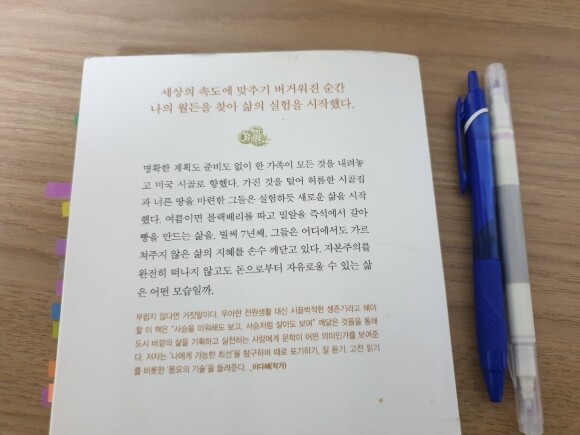 세상의 속도에 맞추기 버거워진 순간
나의 월든을 찾아 삶의 실험을 시작했다.
명확한 계획도 준비도 없이 한 가족이 모든 것을 내려놓
고 미국 시골로 향했다. 가진 것을 털어 허름한 시골집
과 너른 땅을 마련한 그들은 실험하듯 새로운 삶을 시작
했다. 여름이면 블랙베리를 따고 밀알을 즉석에서 갈아
빵을 만드는 삶을. 벌써 7년째, 그들은 어디에서도 가르
쳐주지 않은 삶의 지혜를 손수 깨닫고 있다. 자본주의를
완전히 떠나지 않고도 돈으로부터 자유로울 수 있는 삶
은 어떤 모습일까.
부럽지 않다면 거짓말이다. 우아한 전원생활 대신 시끌벅적한 생존기라고 해야
할 이 책은 "사슴을 미워해도 보고, 사슴처럼 살아도 보며" 깨달은 것들을 통해
도시 바깥의 삶을 기획하고 실천하는 사람에게 문학이 어떤 의미인가를 보여준
다. 저자는 '나에게 가능한 최선'을 탐구하며 때로 포기하기, 잘 듣기, 고전 읽기
를 비롯한 '풍요의 기술'을 들려준다. _이다혜(작가)